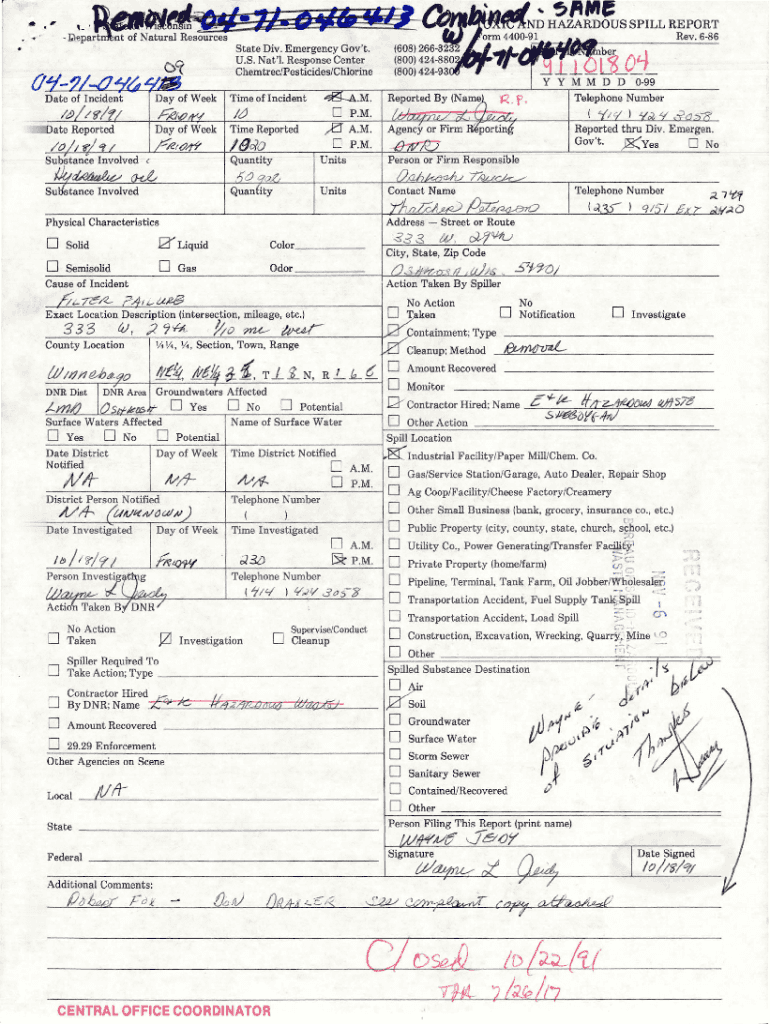 Removed 04-71-046413 Combined - SAME
W/ 04-71-046409
Wisconsin
Department of Natural Resources
TOXIC AND HAZARDOUS SPILL REPORT
Form 4400-91 Rev. 6-86
State Div. Emergency Gov't. (608) 266-3232
U.S. Nat'l. Response Center (800) 424-8802
Chemtrec/Pesticides/Chlorine (800) 424-9300
09
04-71-046413
Number
91101804
Y Y M M D D 0-99
Date of Incident Day of Week Time of Incident A.M. Reported By (Name) R.P. Telephone Number
10/18/91 FRIDAY 10 P.M. Wayne L Jeidy (414) 424 3058
Date Reported Day of Week Time Reported A.M. Agency or Firm Reporting Reported thru Div. Emergen.
10/18/91 FRIDAY 1020 P.M. DNR Gov't. Yes No
Substance Involved Quantity Units Person or Firm Responsible
Hydraulic oil 50 gal Oshkosh Truck
Substance Involved Quantity Units Contact Name Telephone Number
Thatcher Peterson (235) 9151 EXT 2420
2749
Physical Characteristics Address — Street or Route
333 W. 29th
Solid Liquid Color
City, State, Zip Code
Semisolid Gas Odor Oshkosh, Wis. 54901
Cause of Incident Action Taken By Spiller
FILTER FAILURE
No Action Taken No Notification Investigate
Exact Location Description (intersection, mileage, etc.)
333 W. 29th 1/10 mi west
Containment; Type
County Location ¼¼, ¼, Section, Town, Range
Cleanup; Method Removal
Winnebago NE¼, NE¼ , T 18 N, R 16 E
Amount Recovered
Monitor
DNR Dist DNR Area Groundwaters Affected
LMD OSHKOSH Yes No Potential
Contractor Hired; Name E+K HAZARDOUS WASTE
SHEBOYGAN
Other Action
Surface Waters Affected Name of Surface Water
Yes No Potential
Spill Location
Date District Notified Day of Week Time District Notified
NA NA NA A.M. P.M.
Industrial Facility/Paper Mill/Chem. Co.
Gas/Service Station/Garage, Auto Dealer, Repair Shop
Ag Coop/Facility/Cheese Factory/Creamery
District Person Notified Telephone Number
NA (UNKNOWN) ( )
Other Small Business (bank, grocery, insurance co., etc.)
Public Property (city, county, state, church, school, etc.)
Date Investigated Day of Week Time Investigated
10/18/91 FRIDAY 230 A.M. P.M.
Utility Co., Power Generating/Transfer Facility
Private Property (home/farm)
Person Investigating Telephone Number
Wayne L Jeidy (414) 424 3058
Pipeline, Terminal, Tank Farm, Oil Jobber/Wholesaler
Transportation Accident, Fuel Supply Tank Spill
Action Taken By DNR
Transportation Accident, Load Spill
No Action Taken Investigation Supervise/Conduct Cleanup
Construction, Excavation, Wrecking, Quarry, Mine
Other
RECEIVED
NOV -6 91
Spiller Required To
Take Action; Type
Spilled Substance Destination
Air
Contractor Hired
By DNR; Name E+K HAZARDOUS WASTE
Soil
Groundwater
Amount Recovered
Surface Water
29.29 Enforcement
Storm Sewer
Other Agencies on Scene
Sanitary Sewer
Local NA
Contained/Recovered
Other
WAYNE -
PROVIDE details
of SITUATION BELOW
Thanks
State
Person Filing This Report (print name)
WAYNE JEIDY
Federal
Signature Date Signed
Wayne L Jeidy 10/18/91
Additional Comments:
Robert Fox - DON DRAXLER see complaint copy attached
Closed 10/22/91
7/26/17
CENTRAL OFFICE COORDINATOR